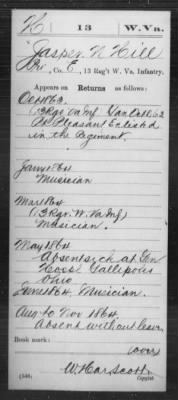 H 13 W. Va.
Jasper N Hill
Pvt, Co. E, 13 Reg't W. Va. Infantry.
Appears on
Returns as follows:
Oct 1863.
Pt Pleasant Enlisted
in the Regiment.
Jany 1864
Musician
Mar 1864
(13 Regt. W. Va Inf)
Musician.
May 1864
Absent sick at Gen
Gallipolis
Ohio
June 1864. Musician.
Aug to Nov 1864
Absent without leave.
Book mark:
(over)
(546)
Copyist